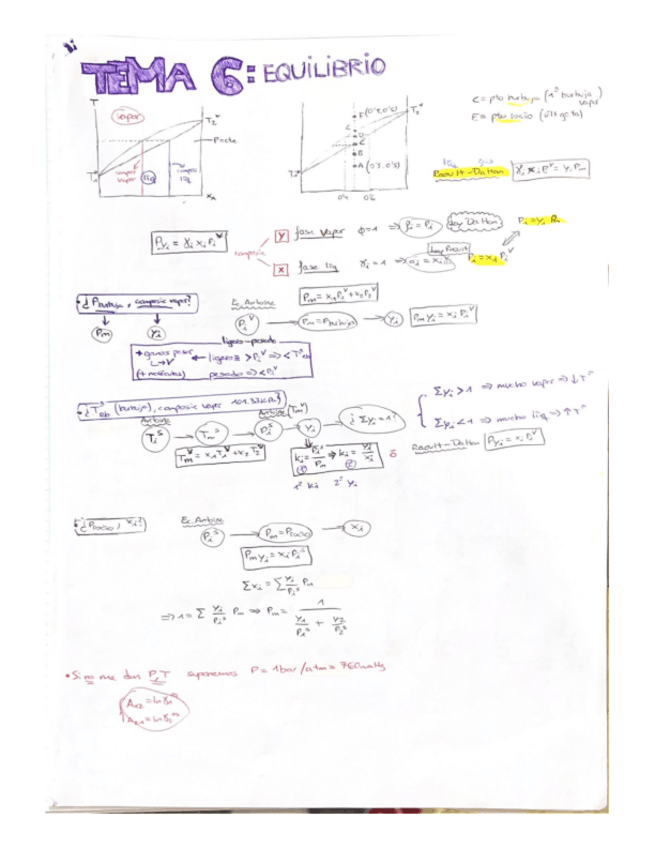 TEMA 6: EQUILIBRIO
T
vapor
T2*
P=cte
T1*
liq
xA
F(0'5,0'5)
T2*
D
C
B
A(0'5,0'5)
T1*
C = pto burbuja (1ª burbuja vapor)
E = pto rocío (últ gota)
liq gas
Raoult-Dalton γi xi Piᵛ = yi Pm
Pyi = γi xi Piᵛ
composic
y fase vapor φ=1 ⇒ Ley Dalton Pi = yi Pm
x fase liq γi = 1 ⇒ ai = xi Ley Raoult Pi = xi Piᵛ
• ¿Pburbuja, composic vapor?
Pm yi
Ec. Antoine Pm = x1P1ᵛ + x2P2ᵛ
Piᵛ → Pm = Pburbuja → yi Pm yi = xi Piᵛ
ligero-pesado
+ ganas pasar ← ligero ≡ > Piᵛ ⇒ < Tˢeb
↳ V
(+ moléculas) pesado ⇒ < Piᵛ
• ¿Tˢeb (burbuja), composic vapor 101.3 kPa?
Antoine Antoine (Tmᵛ)
Tiˢ → Tmˢ → Piˢ → yi → ¿Σyi = 1?
Tmᵛ = x1T1ᵛ + x2T2ᵛ
ki = Piˢ/Pm ⇒ ki = yi/xi ó
① ②
1º ki 2º yi
Σyi > 1 ⇒ mucho vapor ⇒ ↓Tª
Σyi < 1 ⇒ mucho liq ⇒ ↑Tª
Raoult-Dalton Pyi = xi Piᵛ
• ¿Procío, xi?
Ec. Antoine
Piˢ → Pm = Procío → xi
Pm yi = xi Piˢ
Σxi = Σ yi/Piˢ Pm
⇒ 1 = Σ yi/Piˢ Pm ⇒ Pm = 1/(y1/P1ˢ + y2/P2ˢ)
• Si no me dan P, T suponemos P = 1bar/atm = 760mmHg
A12 = lnγ1∞
A21 = lnγ2∞